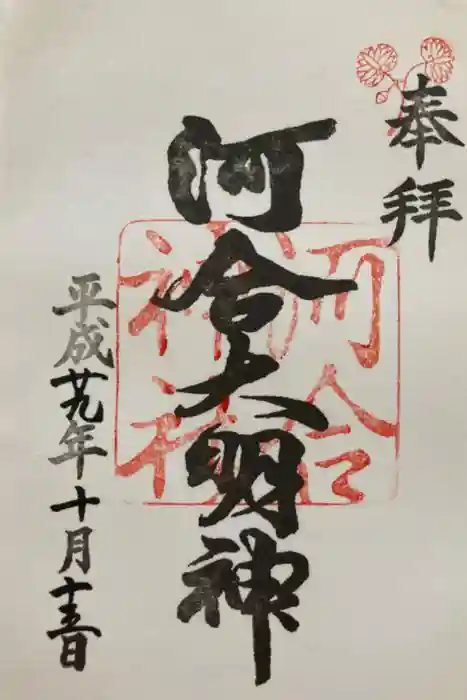 奉拝
河合大明神
河合神社
平成廿九年十月十五日